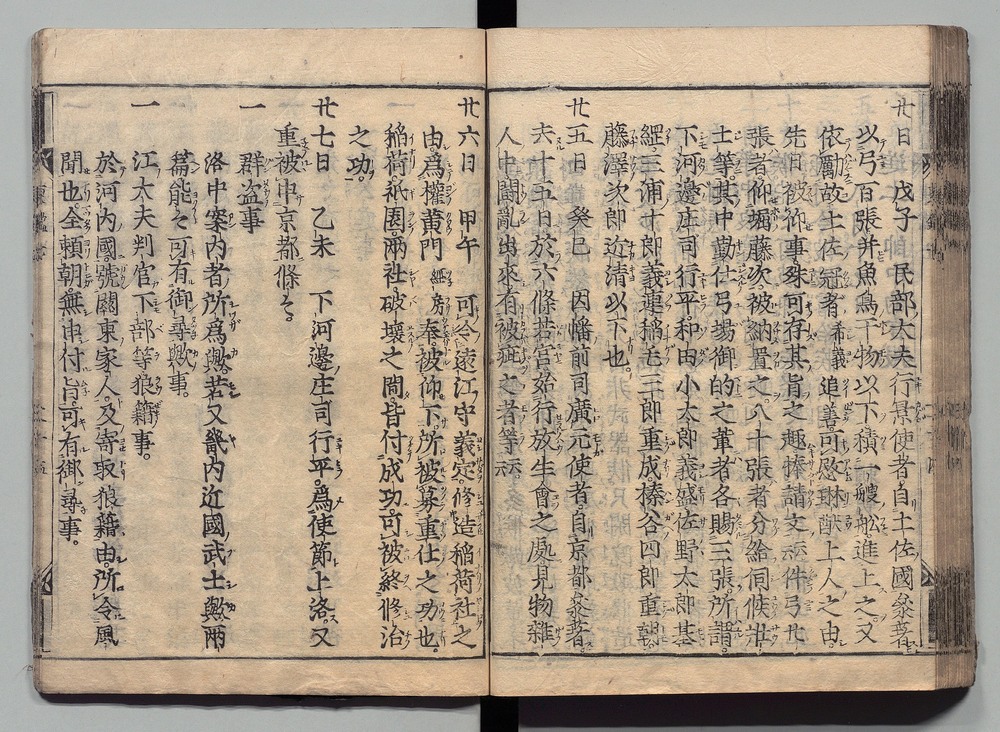 廿日　戊子　民部大夫行景使者自土佐國參著
以弓百張并魚鳥干物以下積一艘舩進上之又
依厲故土佐冠者希義追善可慰琳猷上人之由
先日被祢事殊可存其旨之趣捧請文云件弓廿
張者仰堀藤次被納置之八十張者分給伺候
士等其中勤仕弓場御的之輩者各賜三張所謂
下河邊庄司行平和田小太郎義盛佐野太郎基
經三浦十郎義連稲毛三郎重成榛谷四郎重朝
藤澤次郎近清以下也
廿五日　癸巳　因幡前司廣元使者自京都參著
去十五日於六條若宮始行放生會之處見物雜
人中鬪亂出來有被疵之者等云
廿六日　甲午　可令遠江守義定修造稲荷社之
由爲權黄門經房奉被仰下所被募重任之功也
稲荷祇園兩社破壞之間皆付成功可被終修治
之功
廿七日　乙未　下河邊庄司行平爲使節上洛又
重被申京都條々
一　群盗事
洛中案内者所爲歟若又畿内近國武士歟兩
篇能々可有御尋歟事
一　江大夫判官下部等狼籍事
於河内國號關東家人及寄取狼籍由所令風
聞也全頼朝無申付旨可有御尋事